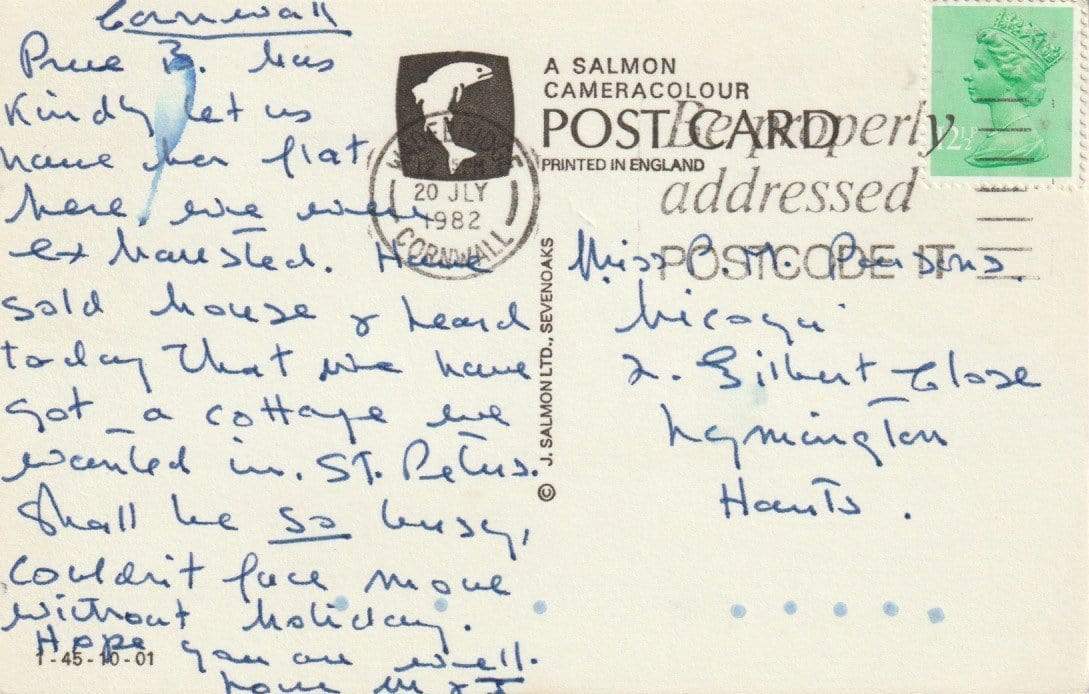 Cornwall
Prue B. has
kindly let us
have her flat
here we were
exhausted. Have
sold house & heard
today that we have
got a cottage we
wanted in St. Peters.
Shall be so busy,
couldn't face move
without holiday.
Hope you are well.
Love M & J
1-45-10-01
A SALMON
CAMERACOLOUR
POST CARD
PRINTED IN ENGLAND
© J. SALMON LTD., SEVENOAKS
20 JLY
1982
CORNWALL
Be properly
addressed
POSTCODE IT
12½P
Miss P. M. Parsons.
2. Gilbert Close
Lymington
Hants.